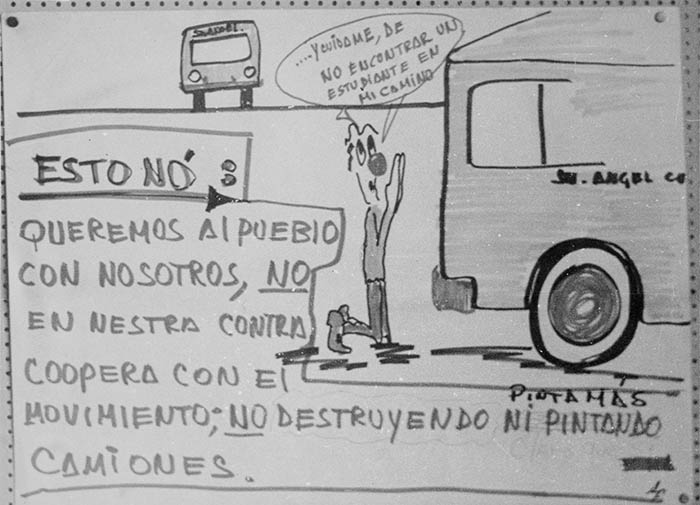 S. ANGEL.
....YCUIDAME, DE
NO ENCONTRAR UN
ESTUDIANTE EN
MI CAMINO
SN. ANGEL CU
ESTO NÓ:
QUEREMOS Al PUEBlO
CON NOSOTROS, NO
EN NESTRA CONTRA
COOPERA CON El
MOVIMIENTO; NO DESTRUYENDO NI PINTANDO
CAMIONES.
PINTAMAS